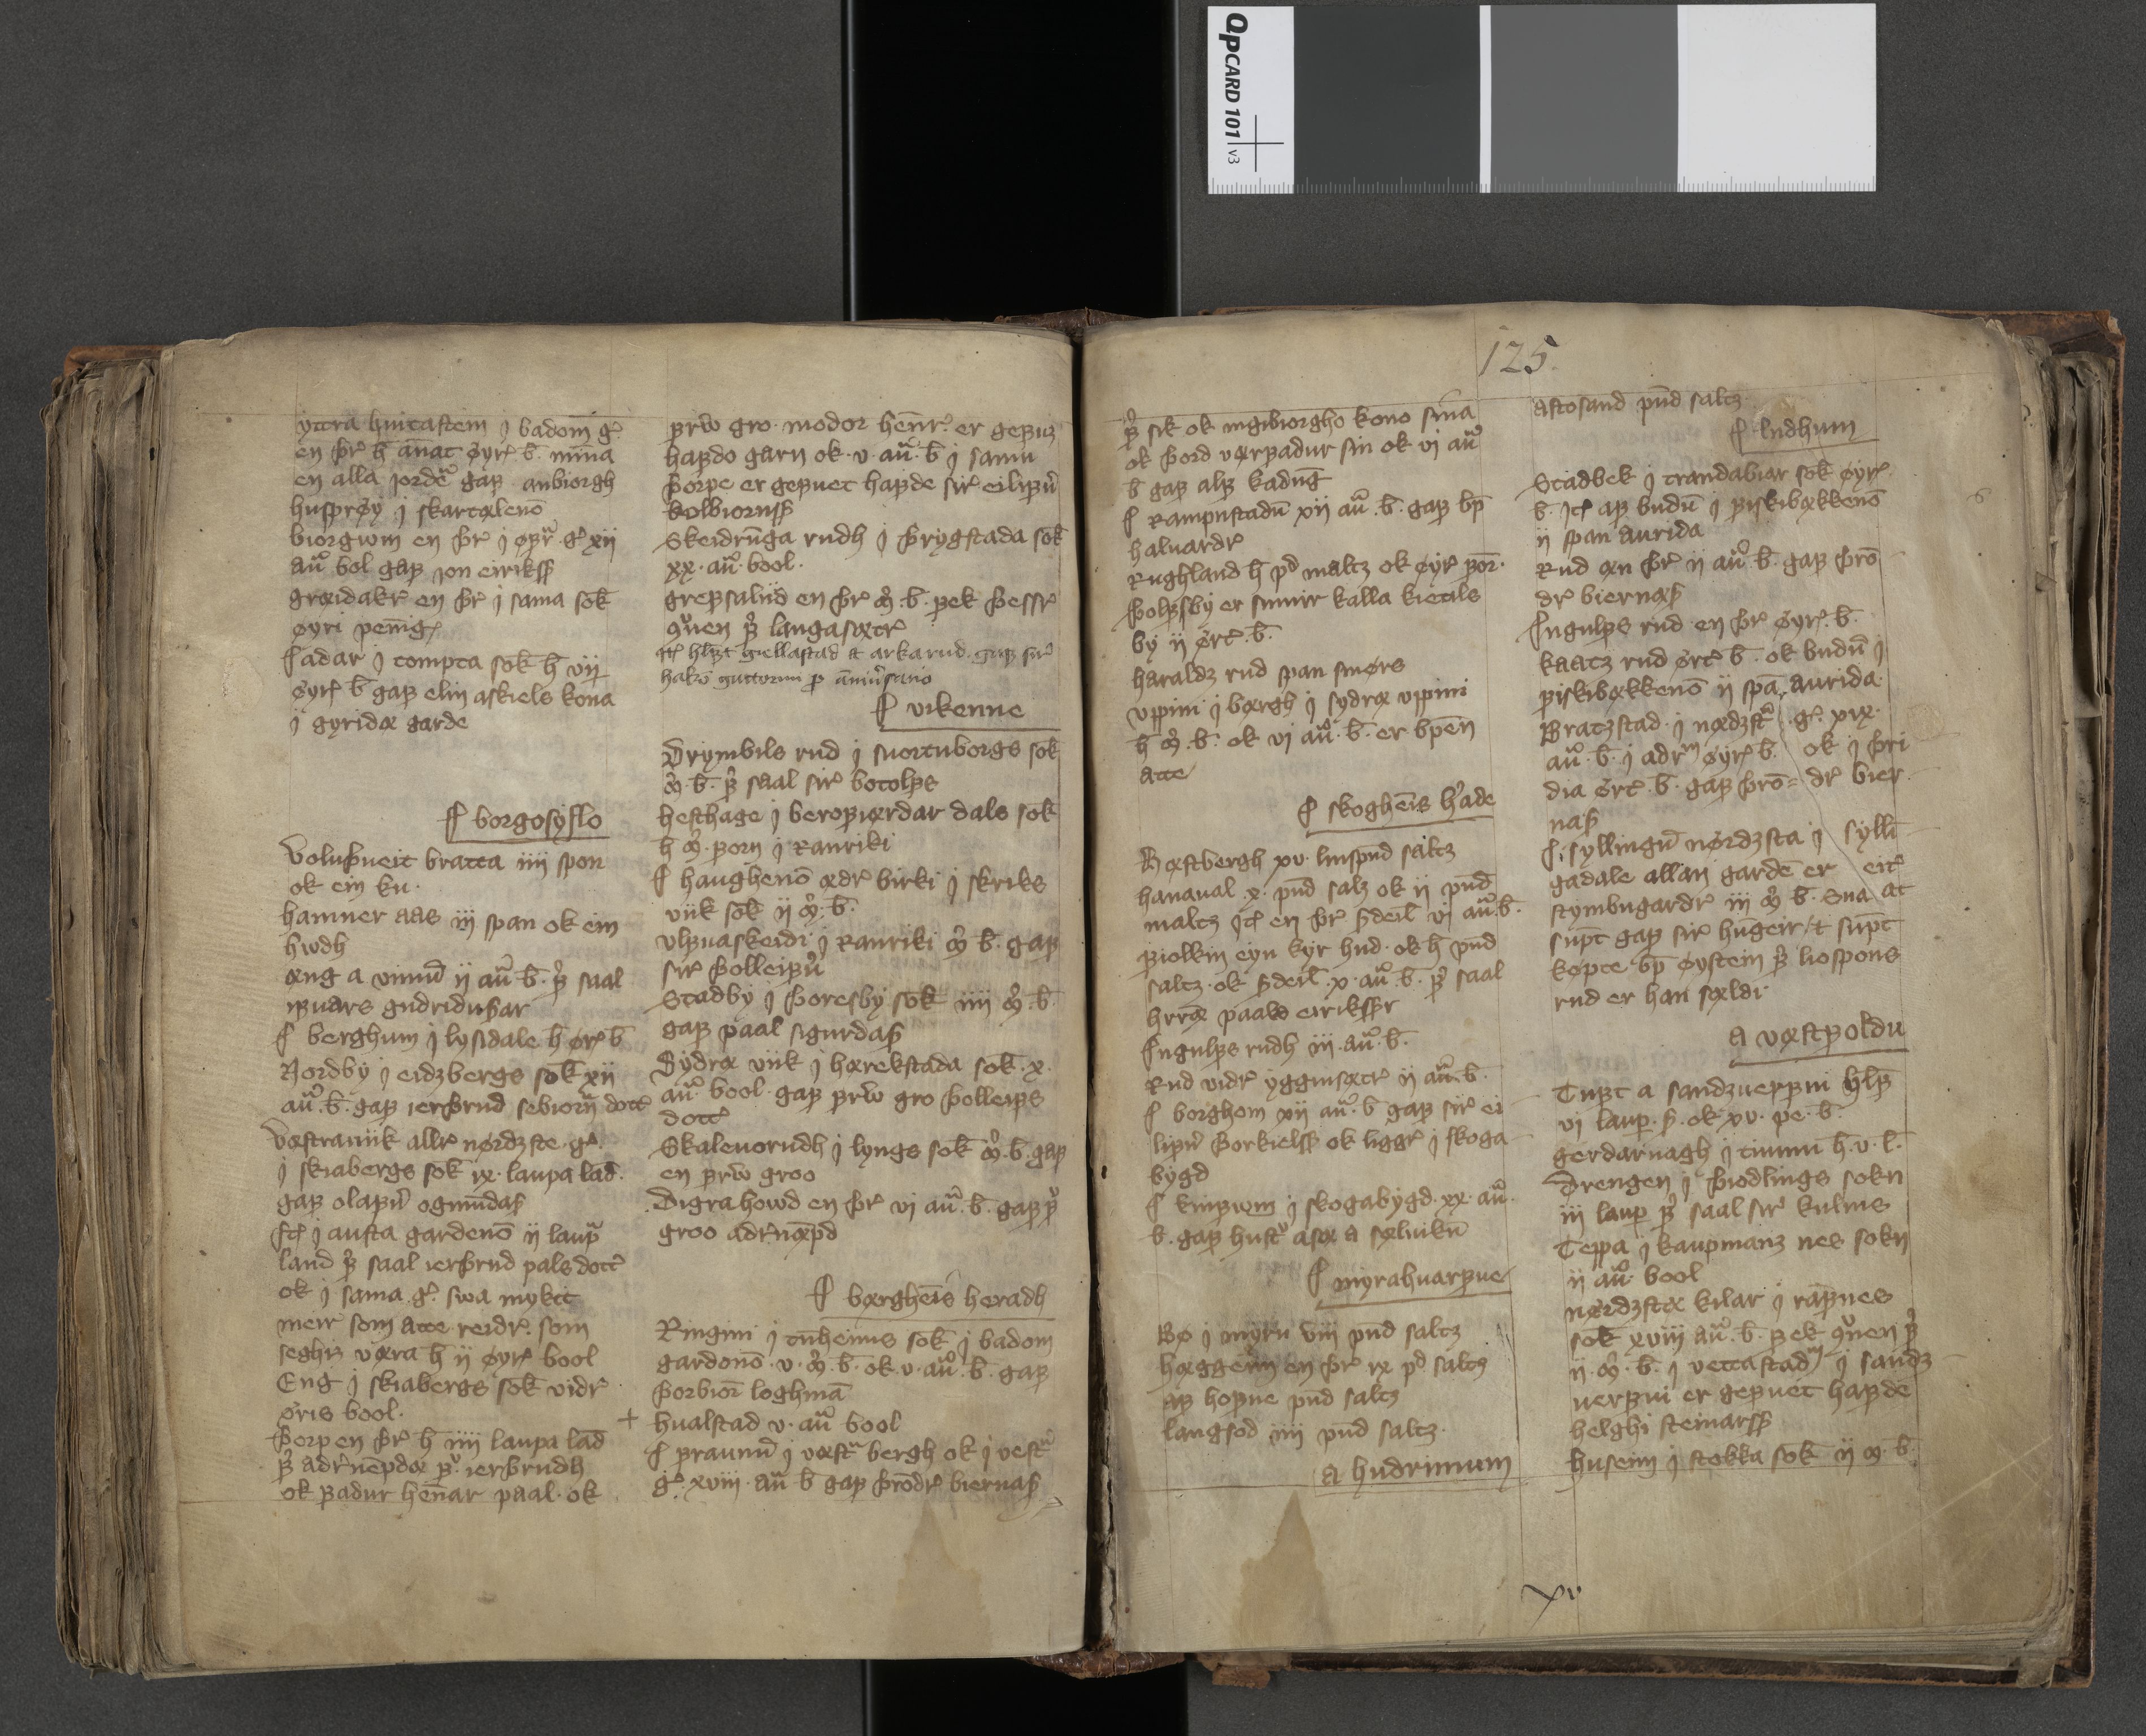 QPCARD 101 v3
yttra huitastein j badom g.
en þr h̄ annat øyr b. minna
en alla jorden gaf anbiorgh
husprøy j skartalenō
biorgwm en þr j øfr g xij
au bol gaf jon eirikss
grøidakr en þr j sama sok
øyri penīg
J adar j tompta sok h̄ vij
øyr b gaf elin askiels kona
j gyridæ garde
J borgosyslo
Voluþueit bratta iiij spon
ok ein ku.
hamner aas iij span ok ein
hwdh
æng a vinnū ij au b. f saal
ifuars gudriduſar
J berghum j lysidale h̄ ør b
Nordby j eidzbergs sok xij
au. b. gaf ierþrud sebiorn dott
Væstrauiik allr nørdzste. g
j skiabergs sok ix. laupa land.
gaf olafur ogmūdas
Jt j austa gardenō ij laup
land f saal ierþrud pals dott
ok j sama. g. swa mykit
meir som atte reidr. som
seghiz væra h̄ ij øyr bool
Eng j skiabergs sok vidr
øris bool.
þorp en þr h̄ iiij laupa lād
f adr nēpdæ f. ierþrudh
ok fadur hēnar paal. ok
frw gro. modor hēnr er gefiz
hafdo garn ok. v. au. b j samu
þorpe er gefuet hafde sir eilifur
kolbiornss
Skeidrūga rudh j þrygstada sok
xx. au. bool.
grefsalud en þr m. b. fek þessr
quen f langasætr
Jt hlut giellastad et arkarud. gaf sir
hakō guttormi p āniusario
J vikenne
Drymbils rud j suortuborgs sok
m. b. f saal sir botolfs
hesthage j berofiærdar dals sok
h̄ m. forn j Ranriki
J haughenō ædr birki j skriks
viik sok ij m. b.
vlfuaskeidi j Ranriki m b. gaf
sir þolleifur
Stadby j þoresby sok iiij m. b.
gaf paal sigurdas
Sydræ viik j hærekstada sok. x.
au. bool. gaf frw gro þolleifs
dott
Skaleuorudh j lyngs sok m. b. gaf
en frw groo
Digra howd en þr vj au. b. gaf f
groo adr næfd
J bærgheīs heradh
Ringini j tūheims sok j badom
gardonō. v. m. b. ok v. au. b. gaf
þorbiorn loghmā
+ hualstad v. au bool
J fraunū j væst bergh ok j vest
g. xviii. au b gaf þrōdr biernas
125
f sik ok ingibiorgho kono sina
ok þord værfadur sin ok vj au
b gaf alf kadung
J Ramfnstadū xij au. b. gaf bp
haluardr
Rughland h̄ pd maltz ok øyr forn.
þolfsby er sumir kalla kietils
by ij ørt. b.
haraldz rud span smørs
vppini j bærgh j sydræ vppini
h̄ m. b. ok vj au. b. er bpen
atte
J skogheīs h'ade
Bæstbergh xv. linspūd saltz
hanaual x. pūd salz ok ij pūd
maltz Jt en þr sdeil vj au. b.
fiolkin eyn kyr hud. ok h̄ pūd
saltz. ok sdeil. x. au. b. f saal
hrræ paals eirikssr
Jngulfs rudh iij. au. b.
Rud vidr ygginsætr ij au. b.
J borghom xij au. b gaf sir ei
lifur þorkielss ok liggr j skoga
bygd
J knifwm j skogabygd. xx. au.
b. gaf hust asæ a sæluikū
J myrahuarfue
Bø j myru viii pūd saltz
hæggerin en þr ix pd saltz
af hofue pūd saltz
langsod iiij pūd saltz.
a hudrimum
Astosand pūd saltz
J ludhum
Stadbek j trandabiar sok øyr.
b. Jt af budū j fiskibekkenō
ij span aurida
Rud æn þr ij au. b. gaf þrō
dr biernas
Jngulfs rud en þr øyr. b.
kaatz rud ørt b. ok budū j
fiskibækkenō ij spā. aurida.
Bratzstad. j nædzst. g. xix.
au. b. j adrm øyr b. ok j þri
dia ørt. b. gaf þrō= dr bier
nas
J. syllingū nørdzsta j sylli
gadale allan gardē er eit
stymbugardr iij m b. sua at
supt gaf sir hūgeir t supt
køpte bp øystein f liospons
rud er han sældi
A væstfoldu
Tuft a sandzuerfui hlf
vj laup. s. ok xv. pe. b.
gerdarnagh j tiumu h. v. l.
Drengen j þiodlings sokn
iij laup f saal sir kulnis
Teppa j kaupmanz nes sokn
ij au. bool
nørdzstæ kilar j rafnes
sok xviij au. b. fek quen f
ij. m. b. j vettastadm j sandz
uerfui er gefuet hafde
helghi steinarss
huseim j stokka sok ij m. b.
xv